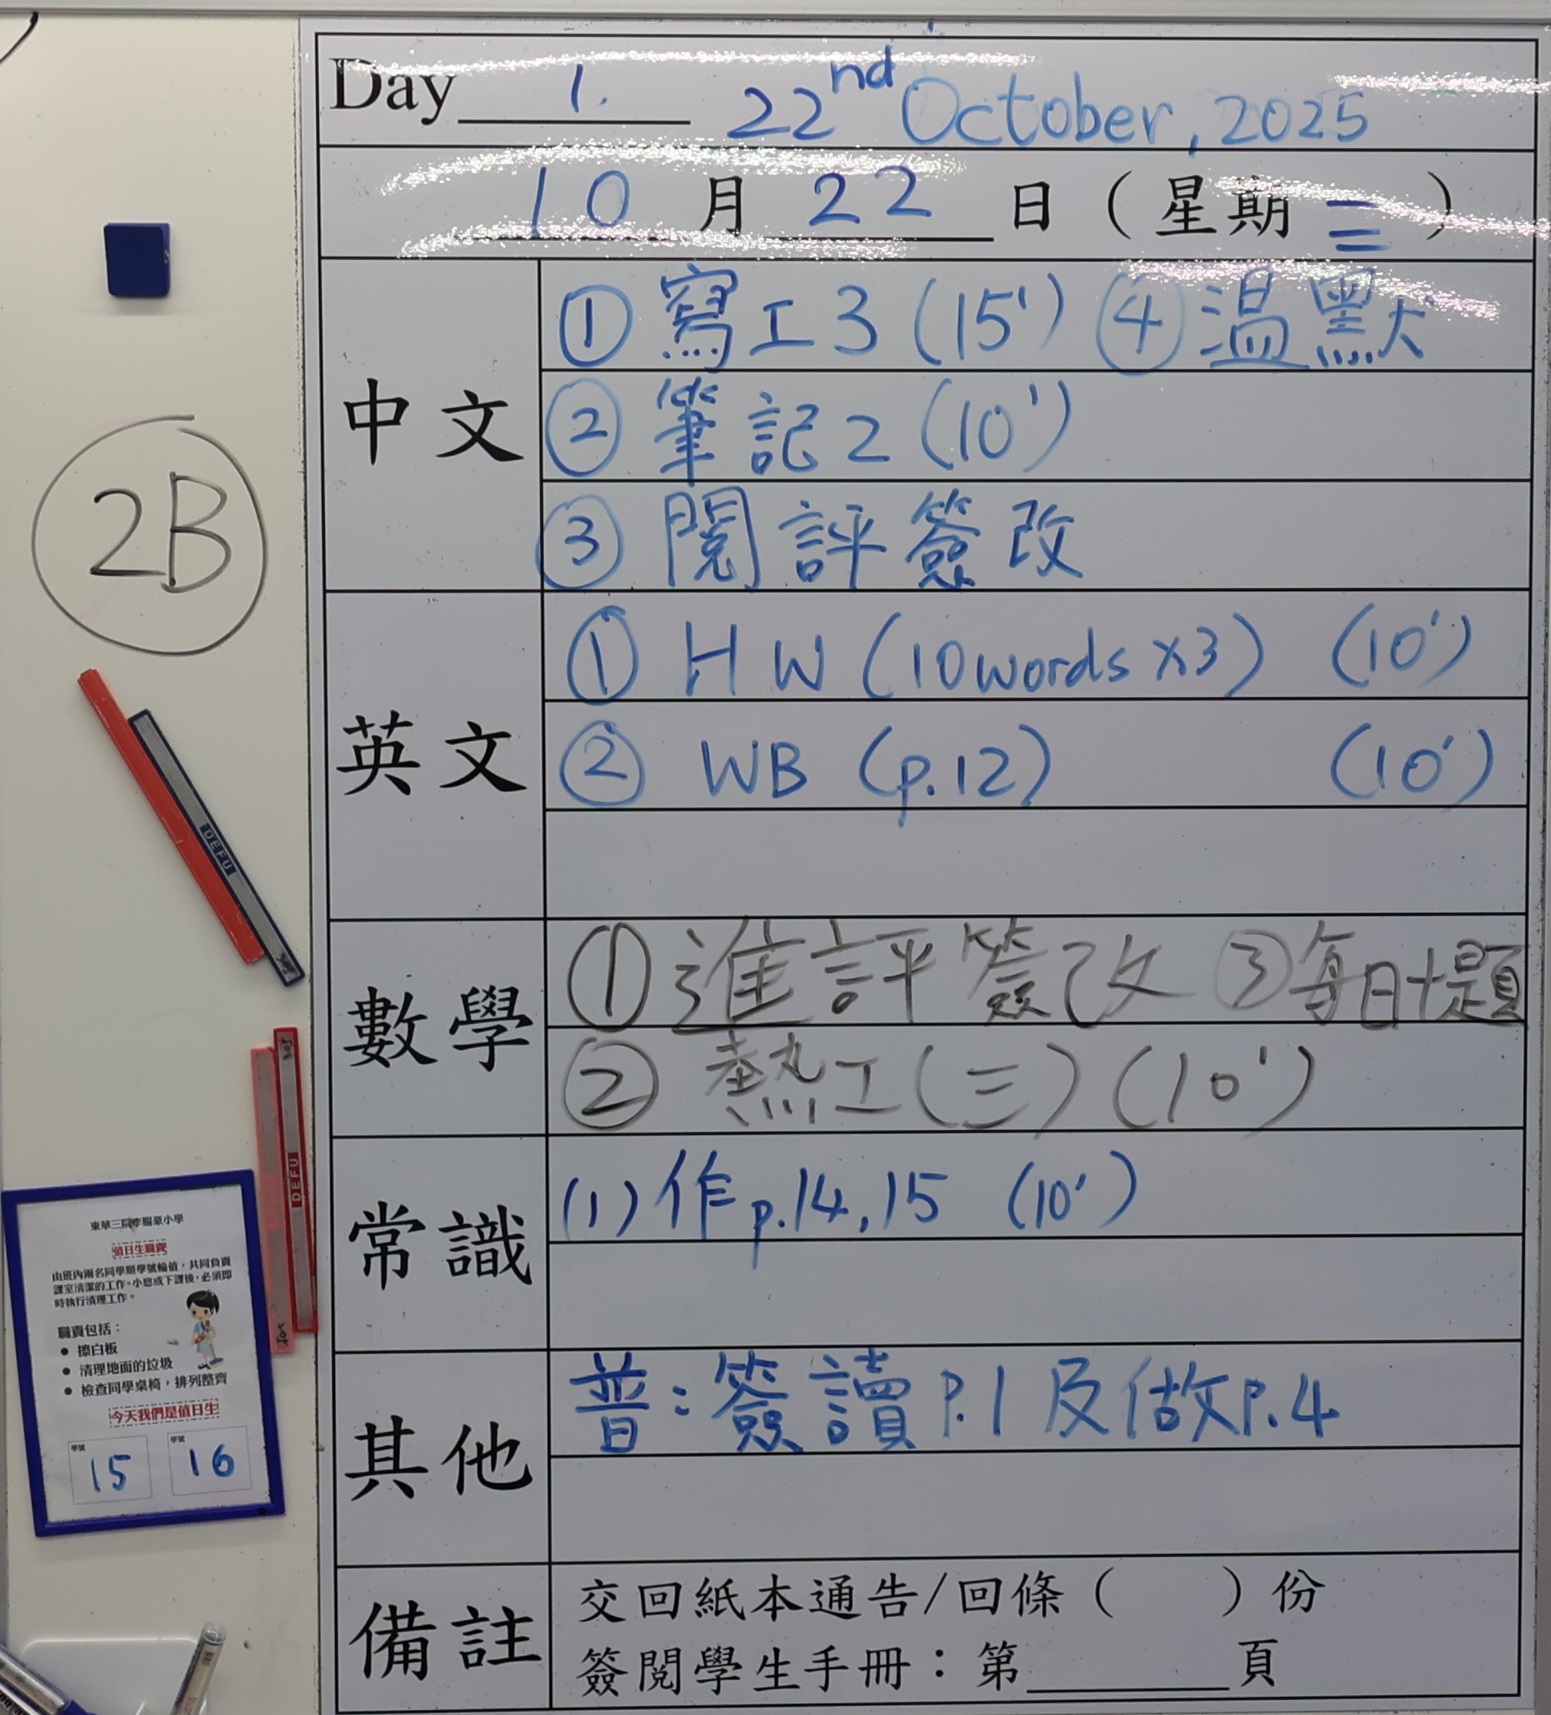 Day 1. 22nd October, 2025
10 月 22 日（星期三）
中文
① 寫工3 (15') ④ 温默
② 筆記2 (10')
③ 閱評簽改
英文
① HW (10words x3) (10')
② WB (p.12) (10')
數學
① 進評簽改 ③ 每日十題
② 熱工(三) (10')
常識
(1) 作p.14,15 (10')
其他
普：簽讀P.1及做P.4
備註
交回紙本通告/回條（ ）份
簽閱學生手冊：第 頁
2B
DEFU
DEFU
東華三院李賜豪小學
值日生職責
由班內兩名同學順學號輪值，共同負責
課室清潔的工作。小息或下課後，必須即
時執行清理工作。
職責包括：
● 擦白板
● 清理地面的垃圾
● 檢查同學桌椅，排列整齊
今天我們是值日生
學號 學號
15 16